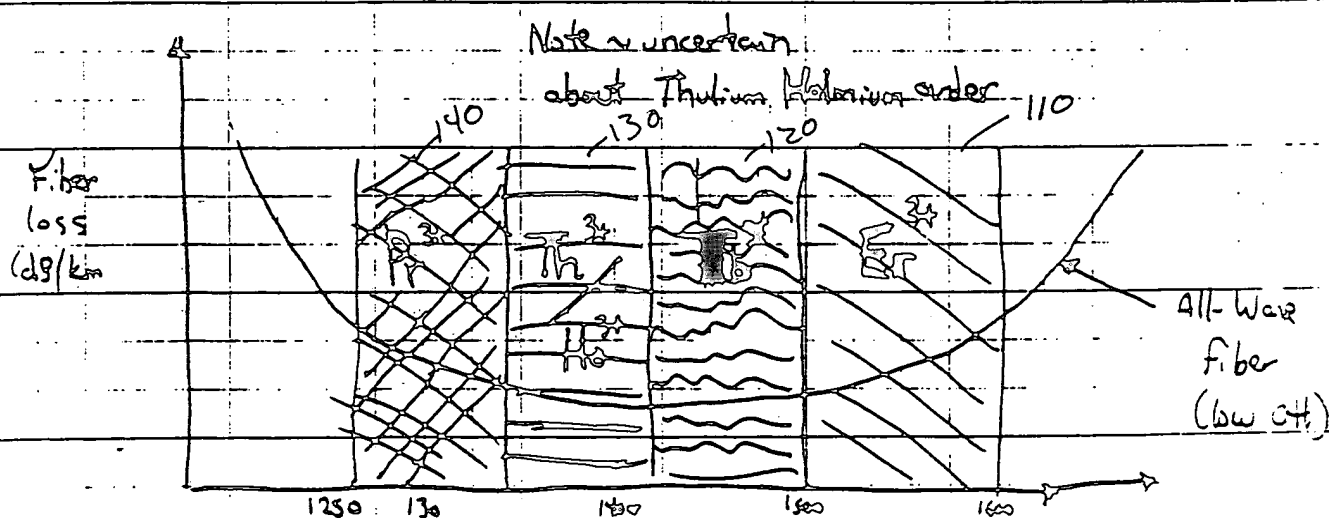 Note ~ uncertain
about Thulium, Holmium order
140
130
120
110
Fiber
loss
(dB/km
Pr 3+
Th 3+
Er 3+
Ho 3+
All-Wave
Fiber
(low OH)
1250 130 1400 1500 1600